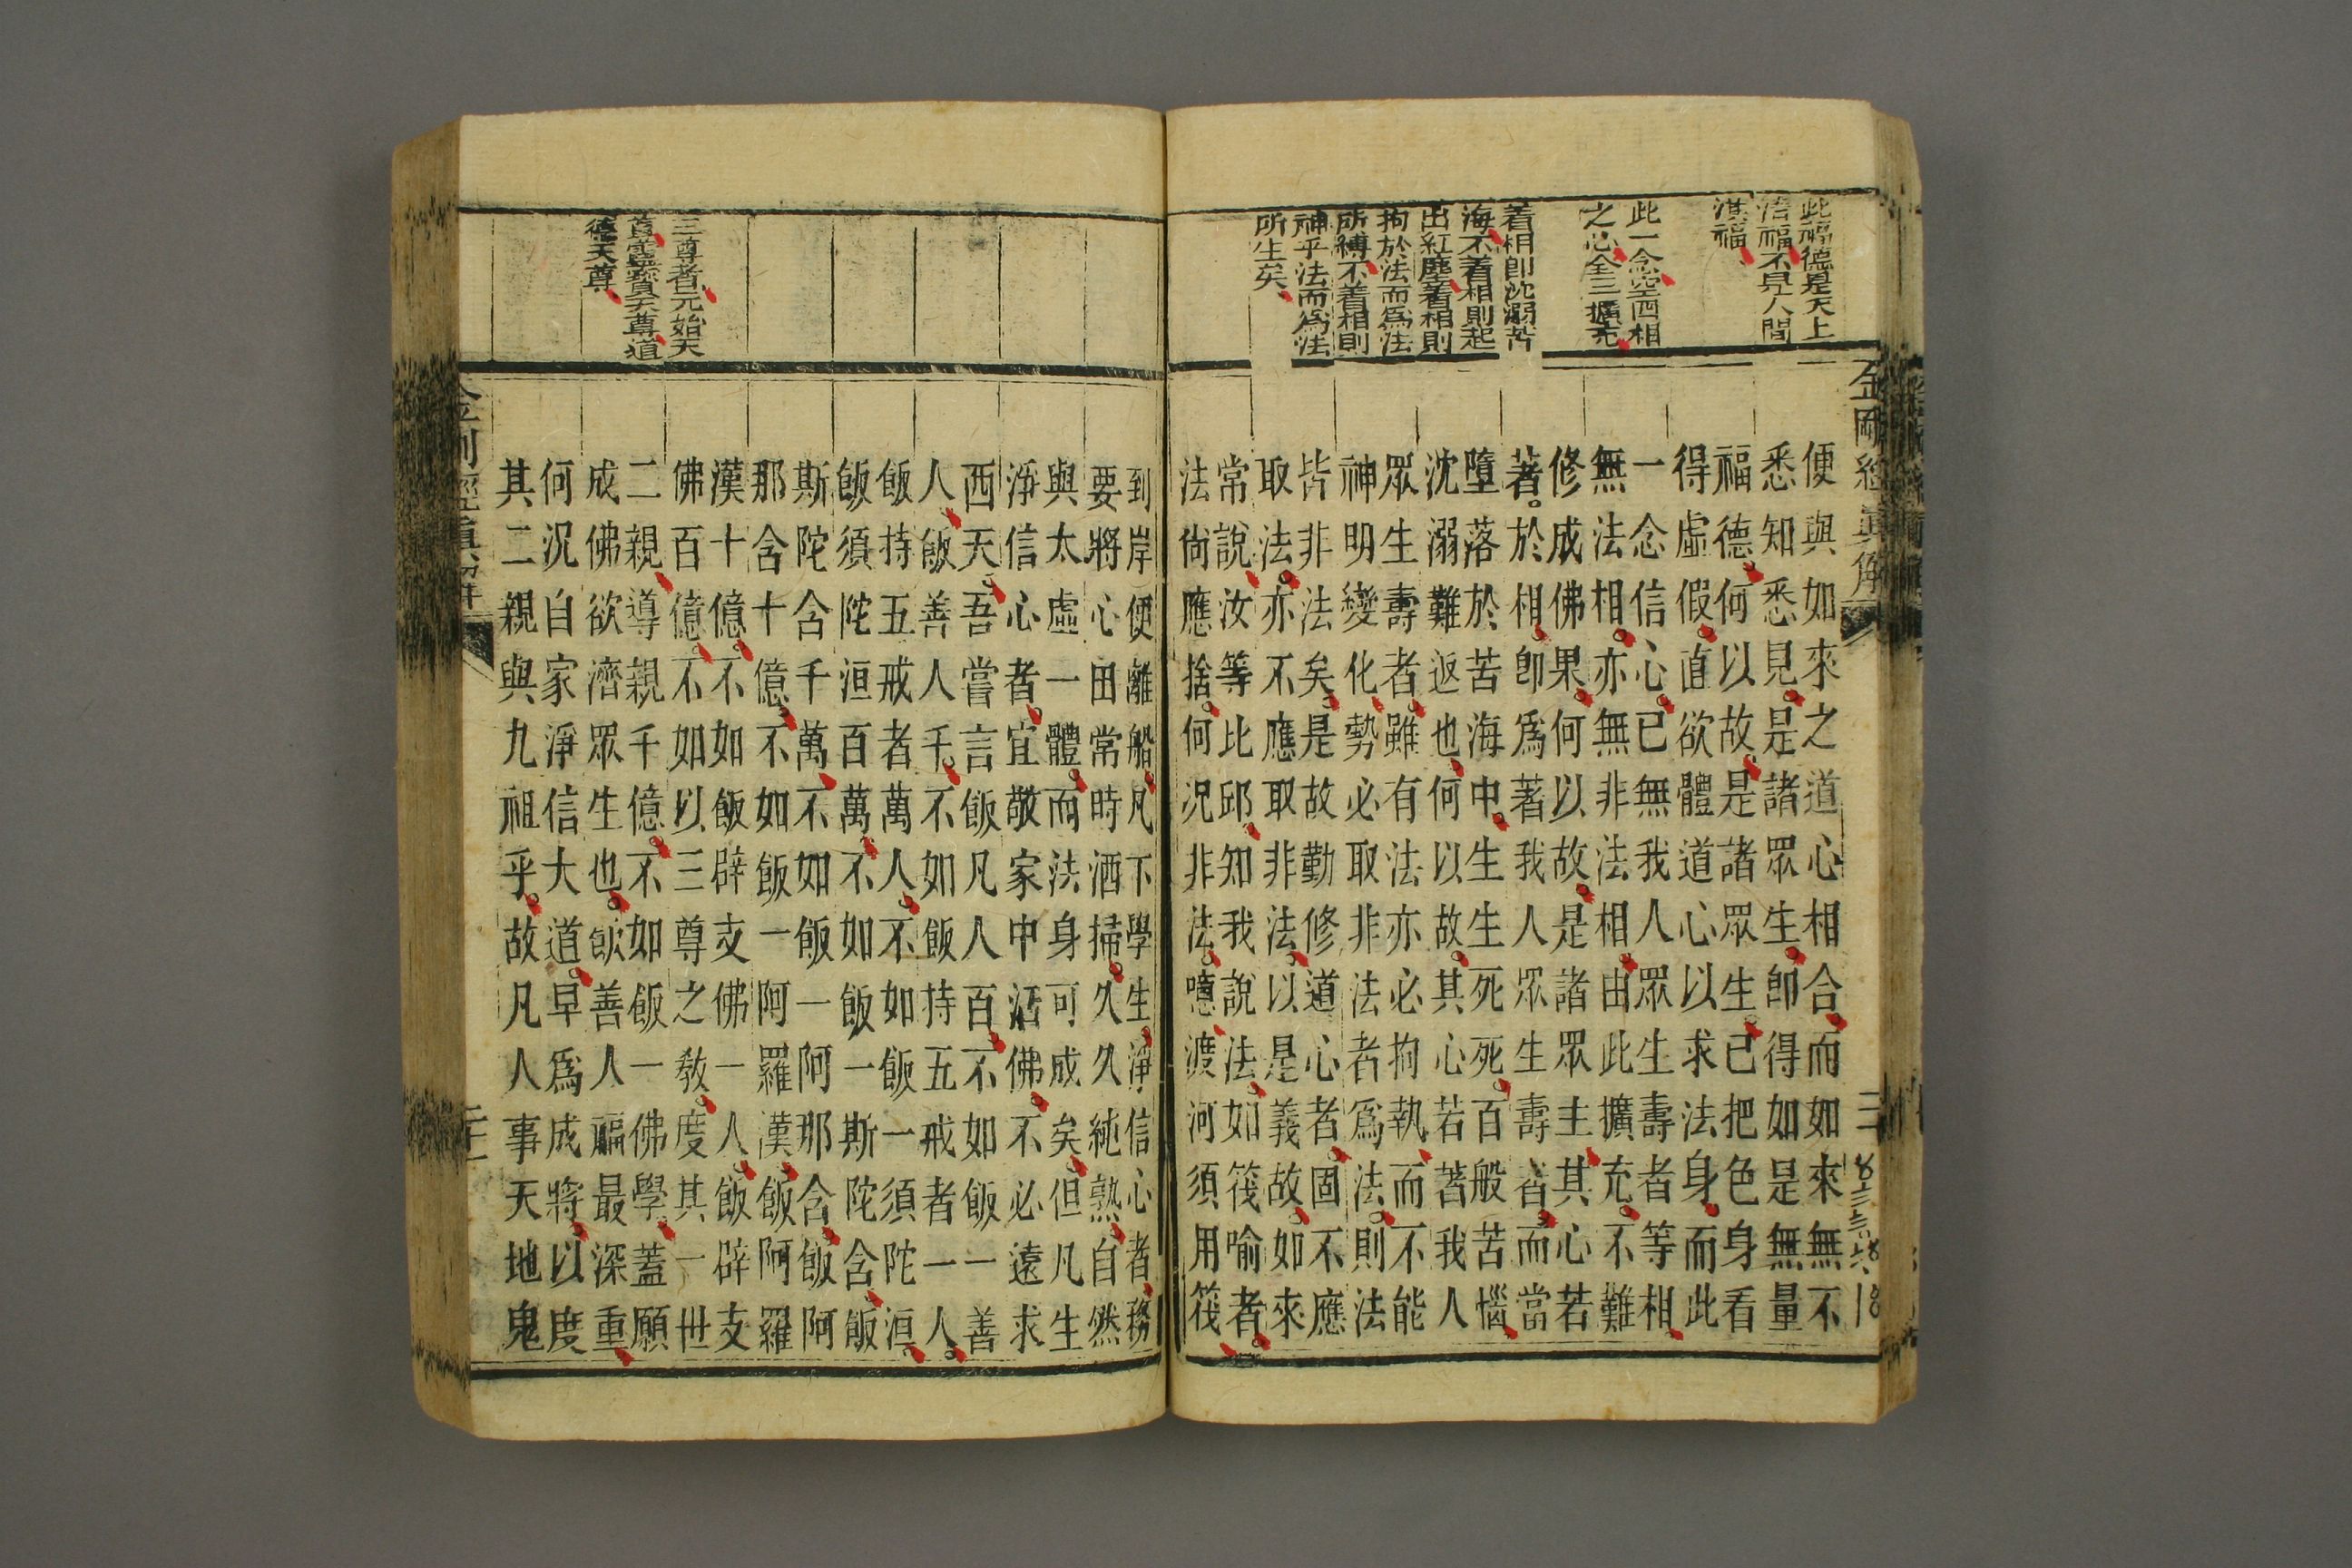 此福德是天上
洪福
此一念空四相
之心全三擴充
着相卽沈溺苦
海不着相則起
出紅塵着相則
拘於法而爲法
所縛不着相則
神乎法而爲法
所生矣
金剛經眞解
便與如來之道心相合而如來無不
悉知悉見是諸眾生卽得如是無量
福德何以故是諸眾生已把色身看
得虛假直欲體道心以求法身而此
一念信心已無我人眾生壽者等相
無法相亦無非法相由此擴充不難
修成佛果何以故是諸眾生其心若
著於相卽爲著我人眾生壽者而當
墮落於苦海中生生死死百般苦惱
沈溺難返也何以故其心若著我人
眾生壽者雖有法亦必拘執而不能
神明變化勢必取非法者爲法則法
皆非法矣是故勤修道心者固不應
取法亦不應取非法以是義故如來
常說汝等比邱知我說法如筏喻者
法尚應捨何況非法噫渡河須用筏
到岸便離船凡下學生淨信心者務
要將心田常時洒掃久久純熟自然
與太虛一體而法身可成矣但凡生
淨信心者宜敬家中活佛不必遠求
西天吾嘗言飯凡人百不如飯一善
人飯善人千不如飯持五戒者一人
飯持五戒者萬人不如飯一須陀洹
飯須陀洹百萬不如飯一斯陀含飯
斯陀含千萬不如飯一阿那含飯阿
那含十億不如飯一阿羅漢飯阿羅
漢十億不如飯辟支佛一人飯辟支
佛百億不如以三尊之教度其一世
二親導親千億不如飯一佛學願
成佛欲濟眾生也飯善人福最深重
何況自家淨信大道早爲成將以度
其二親與九祖乎故凡人事天地鬼
三尊者元始天
尊靈寶天尊道
德天尊